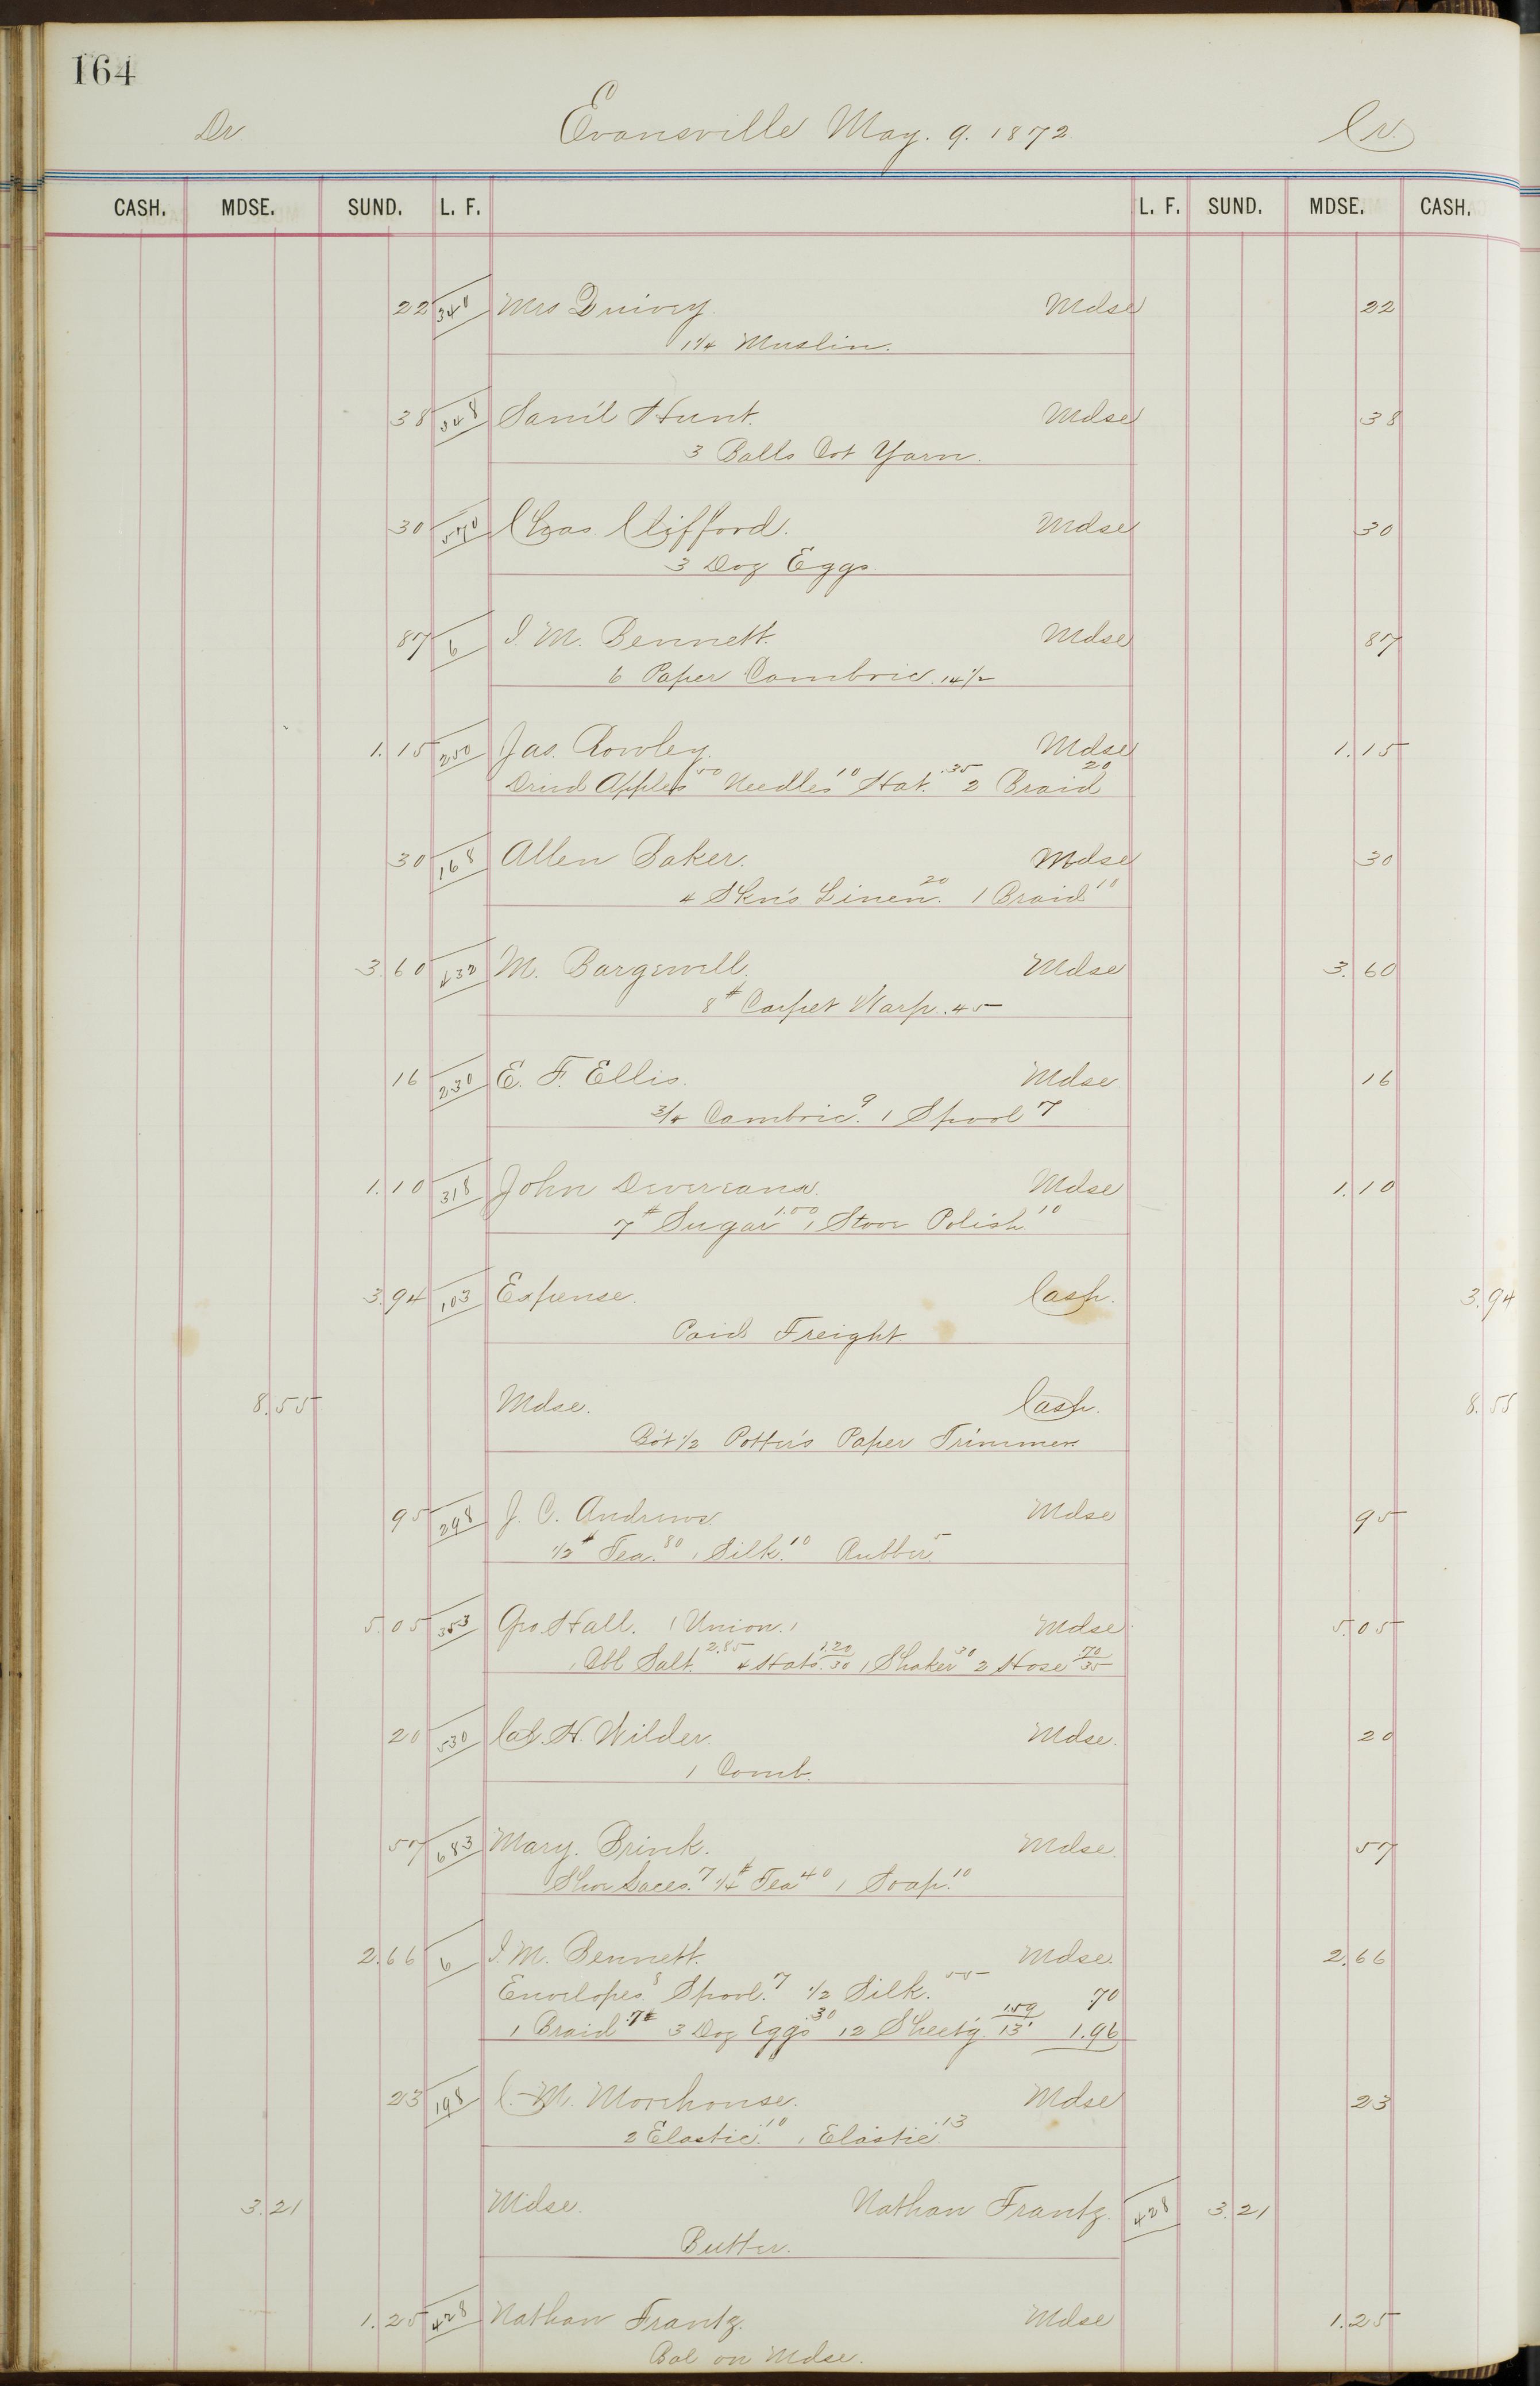 164
Dr Evansville May. 9. 1872 Cr.
CASH. MDSE. SUND. L. F. L. F. SUND. MDSE. CASH.
22 340 Mrs Quivey. Mdse 22
1 1/4 Muslin.
38 348 Sam'l Hunt. Mdse 38
3 Balls Cot Yarn.
30 570 Chas Clifford. Mdse 30
3 Doz Eggs
87 6 I. M. Bennett. Mdse 87
6 Paper Cambric. 14 1/2
1.15 250 Jas. Rowley. Mdse 1.15
Dried Apples 50 Needles 10 Hat. .35 2 Braid 20
30 168 Allen Baker. Mdse 30
4 Skn's Linen. 20 1 Braid 10
3.60 432 M. Bargewell. Mdse 3.60
8# Carpet Warp. .45
16 230 E. F. Ellis. Mdse 16
3/4 Cambric. 9 1 Spool 7
1.10 318 John Devereaux. Mdse 1.10
7# Sugar 1.00 1 Stove Polish 10
3.94 103 Expense. Cash. 3.94
Paid Freight
8.55 Mdse. Cash. 8.55
Bo't 1/2 Potter's Paper Trimmer
95 298 J. C. Andrews. Mdse 95
1/2# Tea. 80 1 Silk. 10 Rubber 5
5.05 353 Geo. Hall. (Union.) Mdse 5.05
1 Bbl Salt. 2.85 4 Hats. 1.20/30 1 Shaker 30 2 Hose 70/35
20 530 Cal. H. Wilder. Mdse. 20
1 Comb.
57 683 Mary. Brink. Mdse. 57
Shoe Laces. 7 1/4# Tea 40 1 Soap. 10
2.66 6 I. M. Bennett. Mdse. 2.66
Envelopes. 8 Spool. 7 1/2 Silk. 55 70
1 Braid .7 3 Doz Eggs .30 12 Sheet'g. 159/13' 1.96
23 198 C. M. Morehouse. Mdse 23
2 Elastic. 10 1 Elastic. .13
3.21 Mdse. Nathan Frantz. 428 3.21
Butter.
1.25 428 Nathan Frantz. Mdse 1.25
Bal on Mdse.